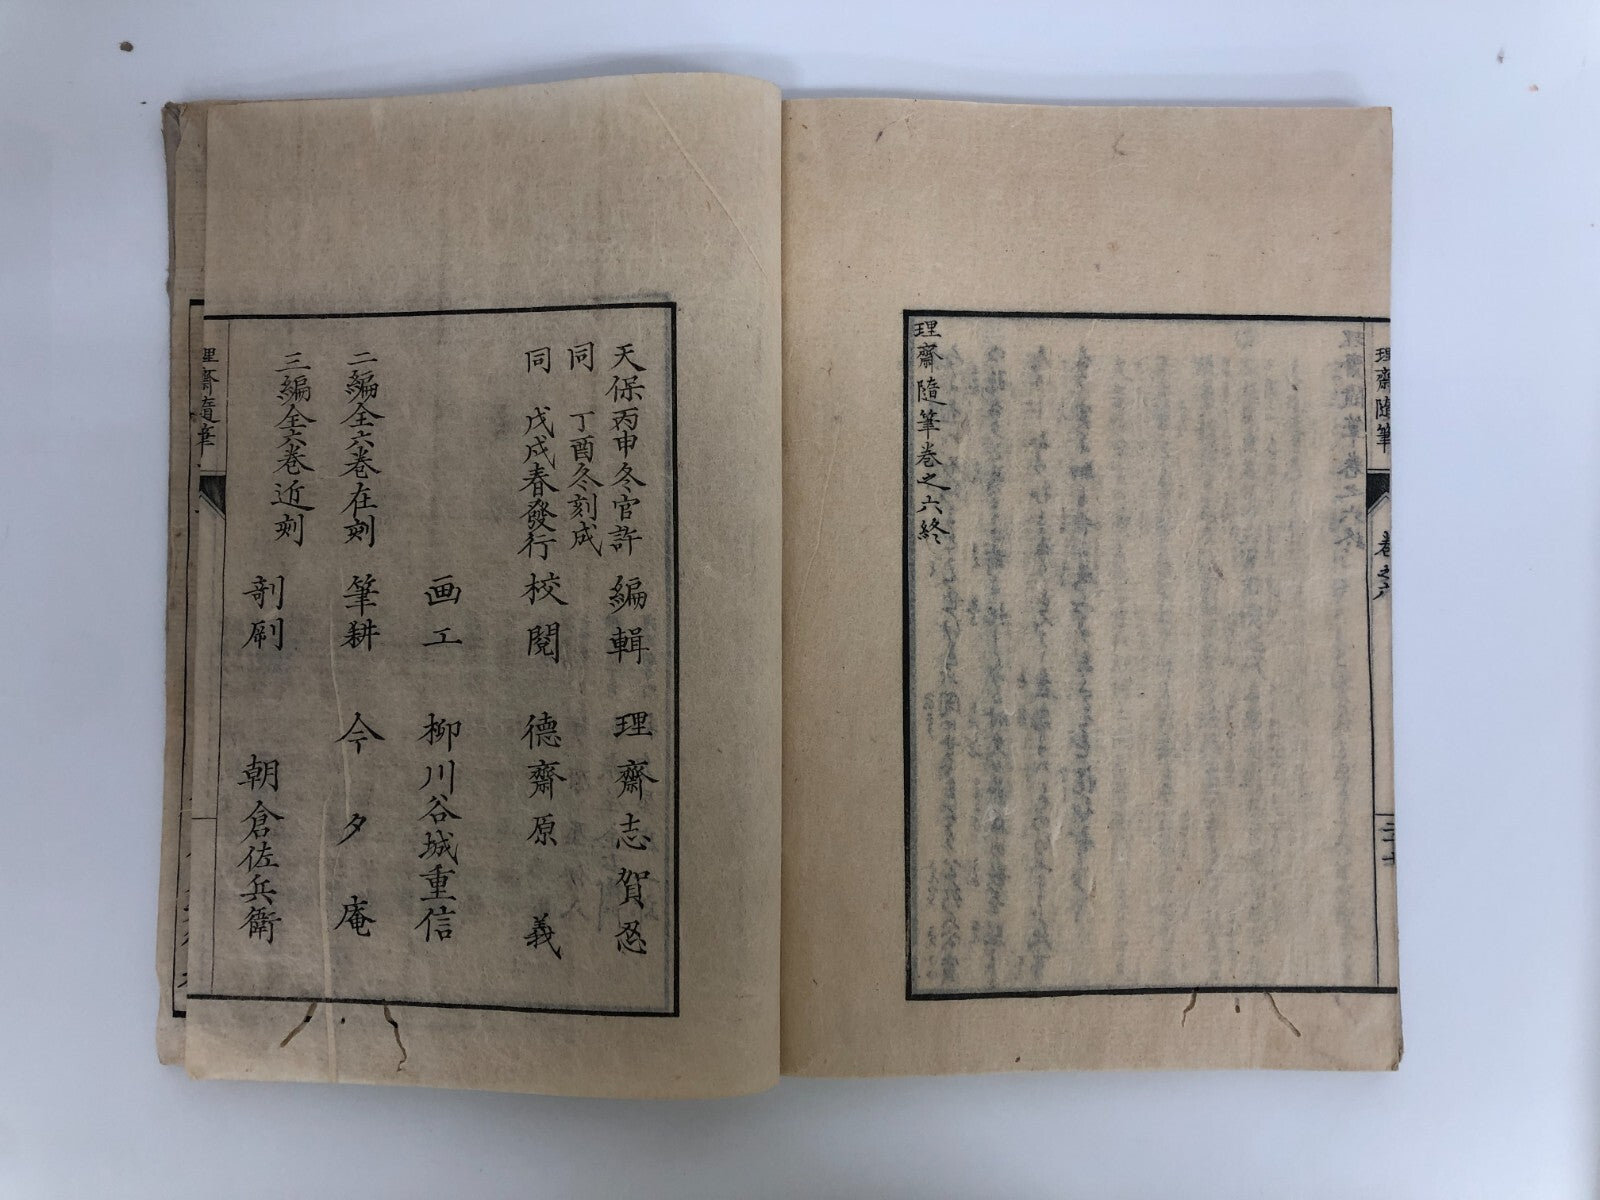 理齋隨筆
卷之六
理齋隨筆卷之六終
天保丙申冬官許
同 丁酉冬刻成
同 戊戌春發行
編輯 理齋志賀忍
校閲 德齋原義
画工 柳川谷城重信
二編全六巻在刻
筆耕 今夕庵
三編全六巻近刻
剞劂 朝倉佐兵衛
理齋隨筆